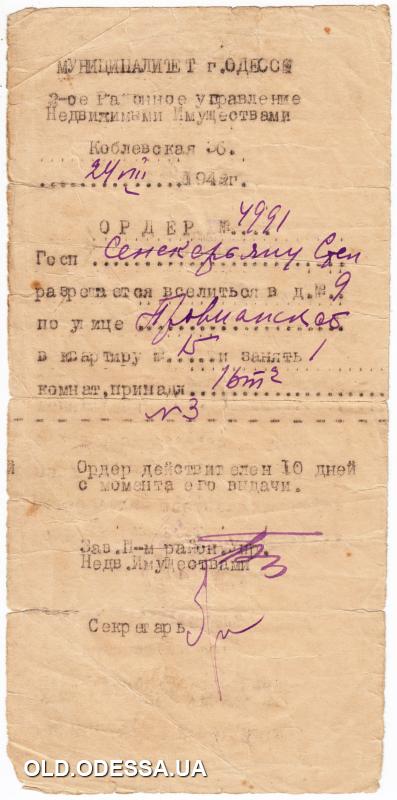 МУНИЦИПАЛИТЕТ г.ОДЕССЫ
2-ое Районное управление
Недвижимыми Имуществами
Коблевская 36.
24 VIII 1942г.
ОРДЕР № 4991
Госп. Сенекерьянц Степ
разрешается вселиться в д.№ 9
по улице Провиантской
в квартиру № 15 и занять 1
комнат,принадл. 16m²
N3
Ордер действителен 10 дней
с момента его выдачи.
Зав.II-м район.Упр.
Недв.Имуществами
Секретарь
OLD.ODESSA.UA